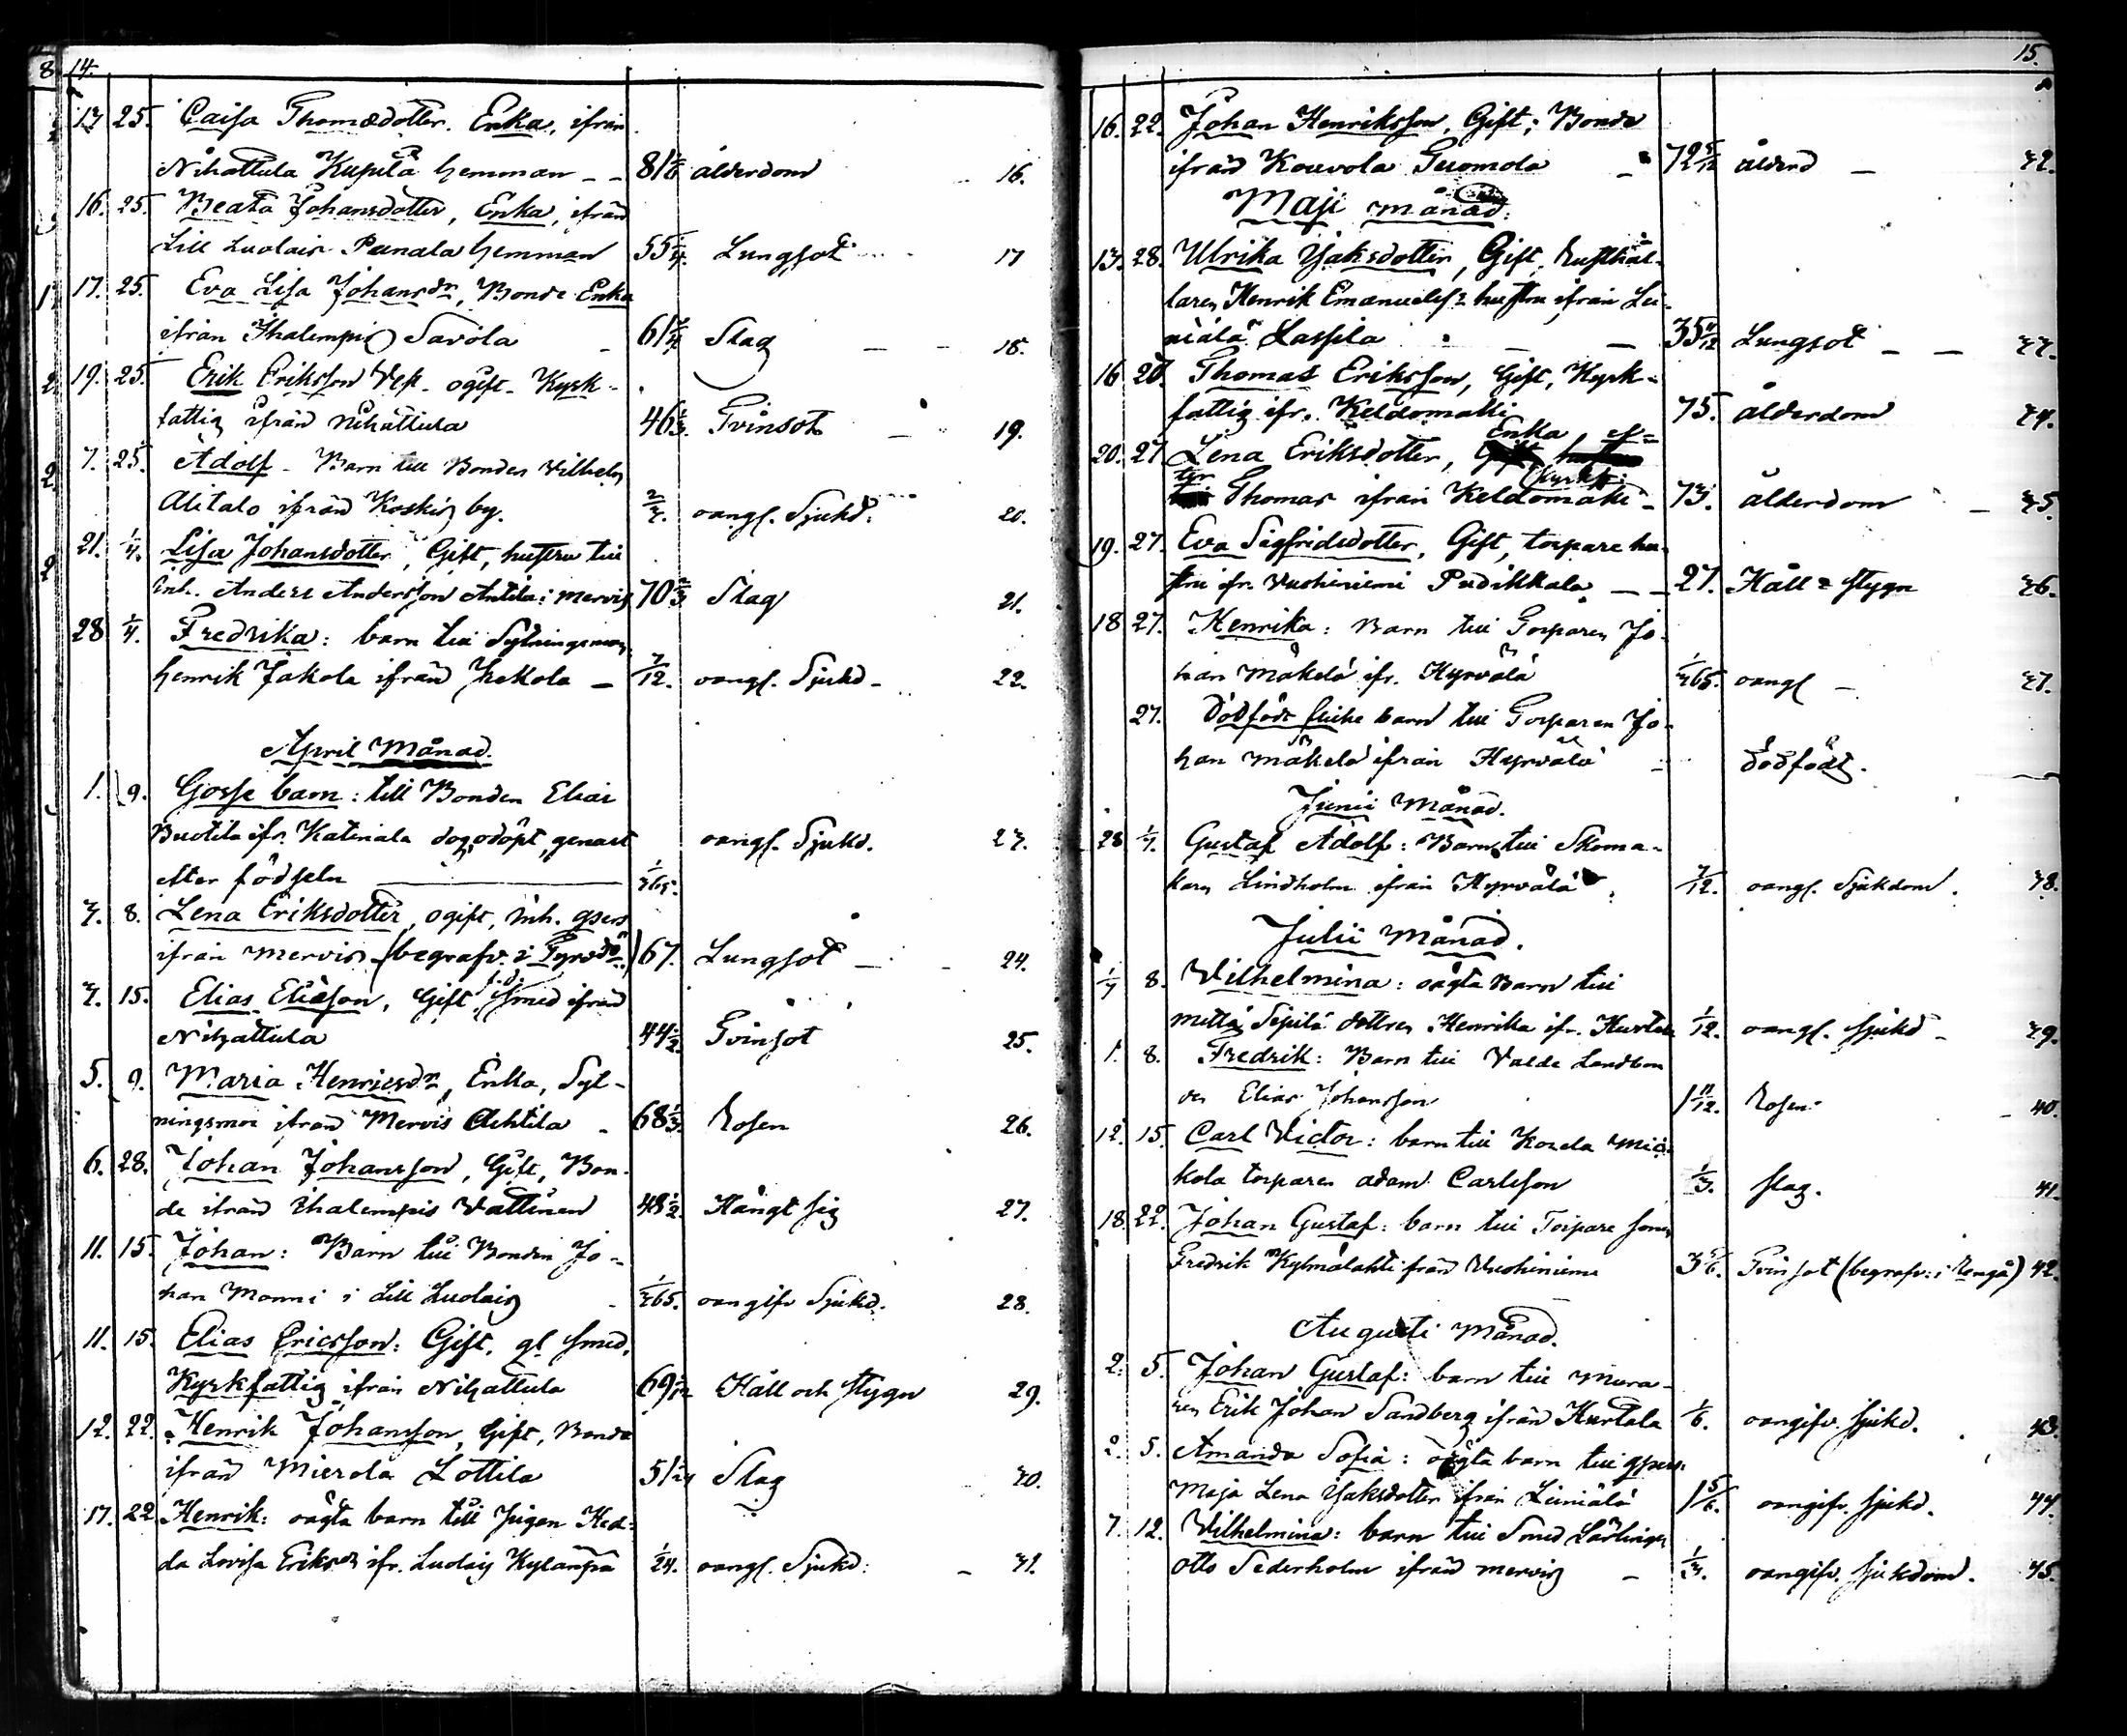 14.
13 25. Caisa Thomædotter. Enka, ifrån
Nihattula Kupila hemman – – 81 1/6 ålderdom 16.
16. 25. Beata Johansdotter, Enka, ifrån
Lill Luolais Panala hemman 55 1/4. Lungsot 17
17. 25. Eva Lisa Johansdr, Bonde Enka
ifrån Ihalempis Savola 61 3/4 Slag 18.
19. 25. Erik Eriksson ogift. Kyrk-
fattig ifrån nihattula 46 1/3. Tvinsot 19.
7. 25. Adolf – Barn till Bonden Vilhelm
Alitalo ifrån Koskis by. 2/3. oangf. Sjukd: 20.
21. 1/4. Lisa Johansdotter, Gift, hustru till
Inh. Anders Andersson Anttila i mervis 70 2/3 Slag 21.
28 1/4. Fredrika: barn till Sytningsman
henrik Jakola ifrån Hekola – 7/12. oangf. Sjukd – 22.
April Månad.
1. 9. Gosse barn: till Bonden Elias
Buotila ifr. Katinala dog odöpt, genast
efter födseln 1/365. oangf. Sjukd. 23.
3. 8. Lena Eriksdotter, ogift, inh. qpers
ifrån Mervis (begrafv. i Tyrvändö) 67. Lungsot – 24.
3. 15. Elias Eliæson, Gift, f.d. Smed ifrån
Nihattula 44 1/2. Tvinsot 25.
5. 9. Maria Henricsdr, Enka, Syt-
ningsmor ifrån Mervis Ahtila 68 1/3. Rosen 26.
6. 28. Johan Johansson, Gift, Bon-
de ifrån Ihalempis Vattinen 48 1/2. Hängt sig 27.
11. 15. Johan: Barn till Bonden Jo-
han Monni i Lill Luolais 1/365. oangifv Sjukd. 28.
11. 15. Elias Ericsson: Gift, gl smed,
Kyrkfattig ifrån Nihattula 69 1/12 Håll och stygn 29.
12. 22. Henrik Johansson, Gift, Bonde
ifrån Mierola Lottila 51 Slag 30.
17. 22. Henrik: oägta barn till Pigan Hed-
da Lovisa Eriksdr ifr. Luolais Kylänpä 1/24. oangf. Sjukd: – 31.
15.
16. 22. Johan Henriksson, Gift; Bonde
ifrån Kouvola Tuomola – 72 5/12 ålderd – 32.
Maji månad.
13. 28. Ulrika Isaksdotter, Gift, Rusthål-
laren Henrik Emanuelss: hustru, ifrån Lei-
niälä Lassila – 35 11/12 Lungsot – – 33.
16 20. Thomas Eriksson, Gift, Kyrk-
fattig ifr. Keldomäki 75. ålderdom 34.
Enka, ef-
20. 27. Lena Eriksdotter,
ter Thomas ifrån Keldomäki – 73. ålderdom – 35.
19. 27. Eva Sigfridsdotter, Gift, torpare hu-
stru ifr. Vuohiniemi Pudikkala. – – 27. Håll = stygn 36.
18 27. Henrika: Barn till Torparen Jo-
han Mäkelä ifr. Hyrvälä 1/365. oangf – 37.
27. Dödfödt flicke barn till Torparen Jo-
han mäkelä ifrån Hyrvälä dödfödt. –
Junii Månad.
28 1/7. Gustaf Adolf: Barn till Skoma-
karen Lindholm ifrån Hyrvälä 7/12. oangf. Sjukdom. 38.
Julii Månad.
1/7 8. Vilhelmina: oägta Barn till
Sepilä dottren Henrika ifr. Hurtala 1/12. oangf. sjukd – 39.
1. 8. Fredrik: Barn till Valde Landbon
den Elias Johansson 1 11/12. Rosen – 40.
12. 15. Carl Victor: barn till Mic-
kola torparen adam Carlsson 1/3. slag. 41.
18. 22. Johan Gustaf: barn till Torpare sonen
Fredrik Kylmälahti från Vuohiniemi 3 5/6. Tvinsot (begrafv: i Rengå) 42.
Augusti Månad.
2. 5. Johan Gustaf: barn till Mura-
ren Erik Johan Sandberg ifrån Hurtala 1/6. oangifv. sjukd. 43.
2. 5. Amanda Sofia: oägta barn till qpers:
Maja Lena Isaksdotter ifrån Leiniälä 1 5/6. oangifv. sjukd. 44.
7. 12. Vilhelmina: barn till Smed Lärlingen
otto Sederholm ifrån mervis – 1/3. oangifv. sjukdom. 45.